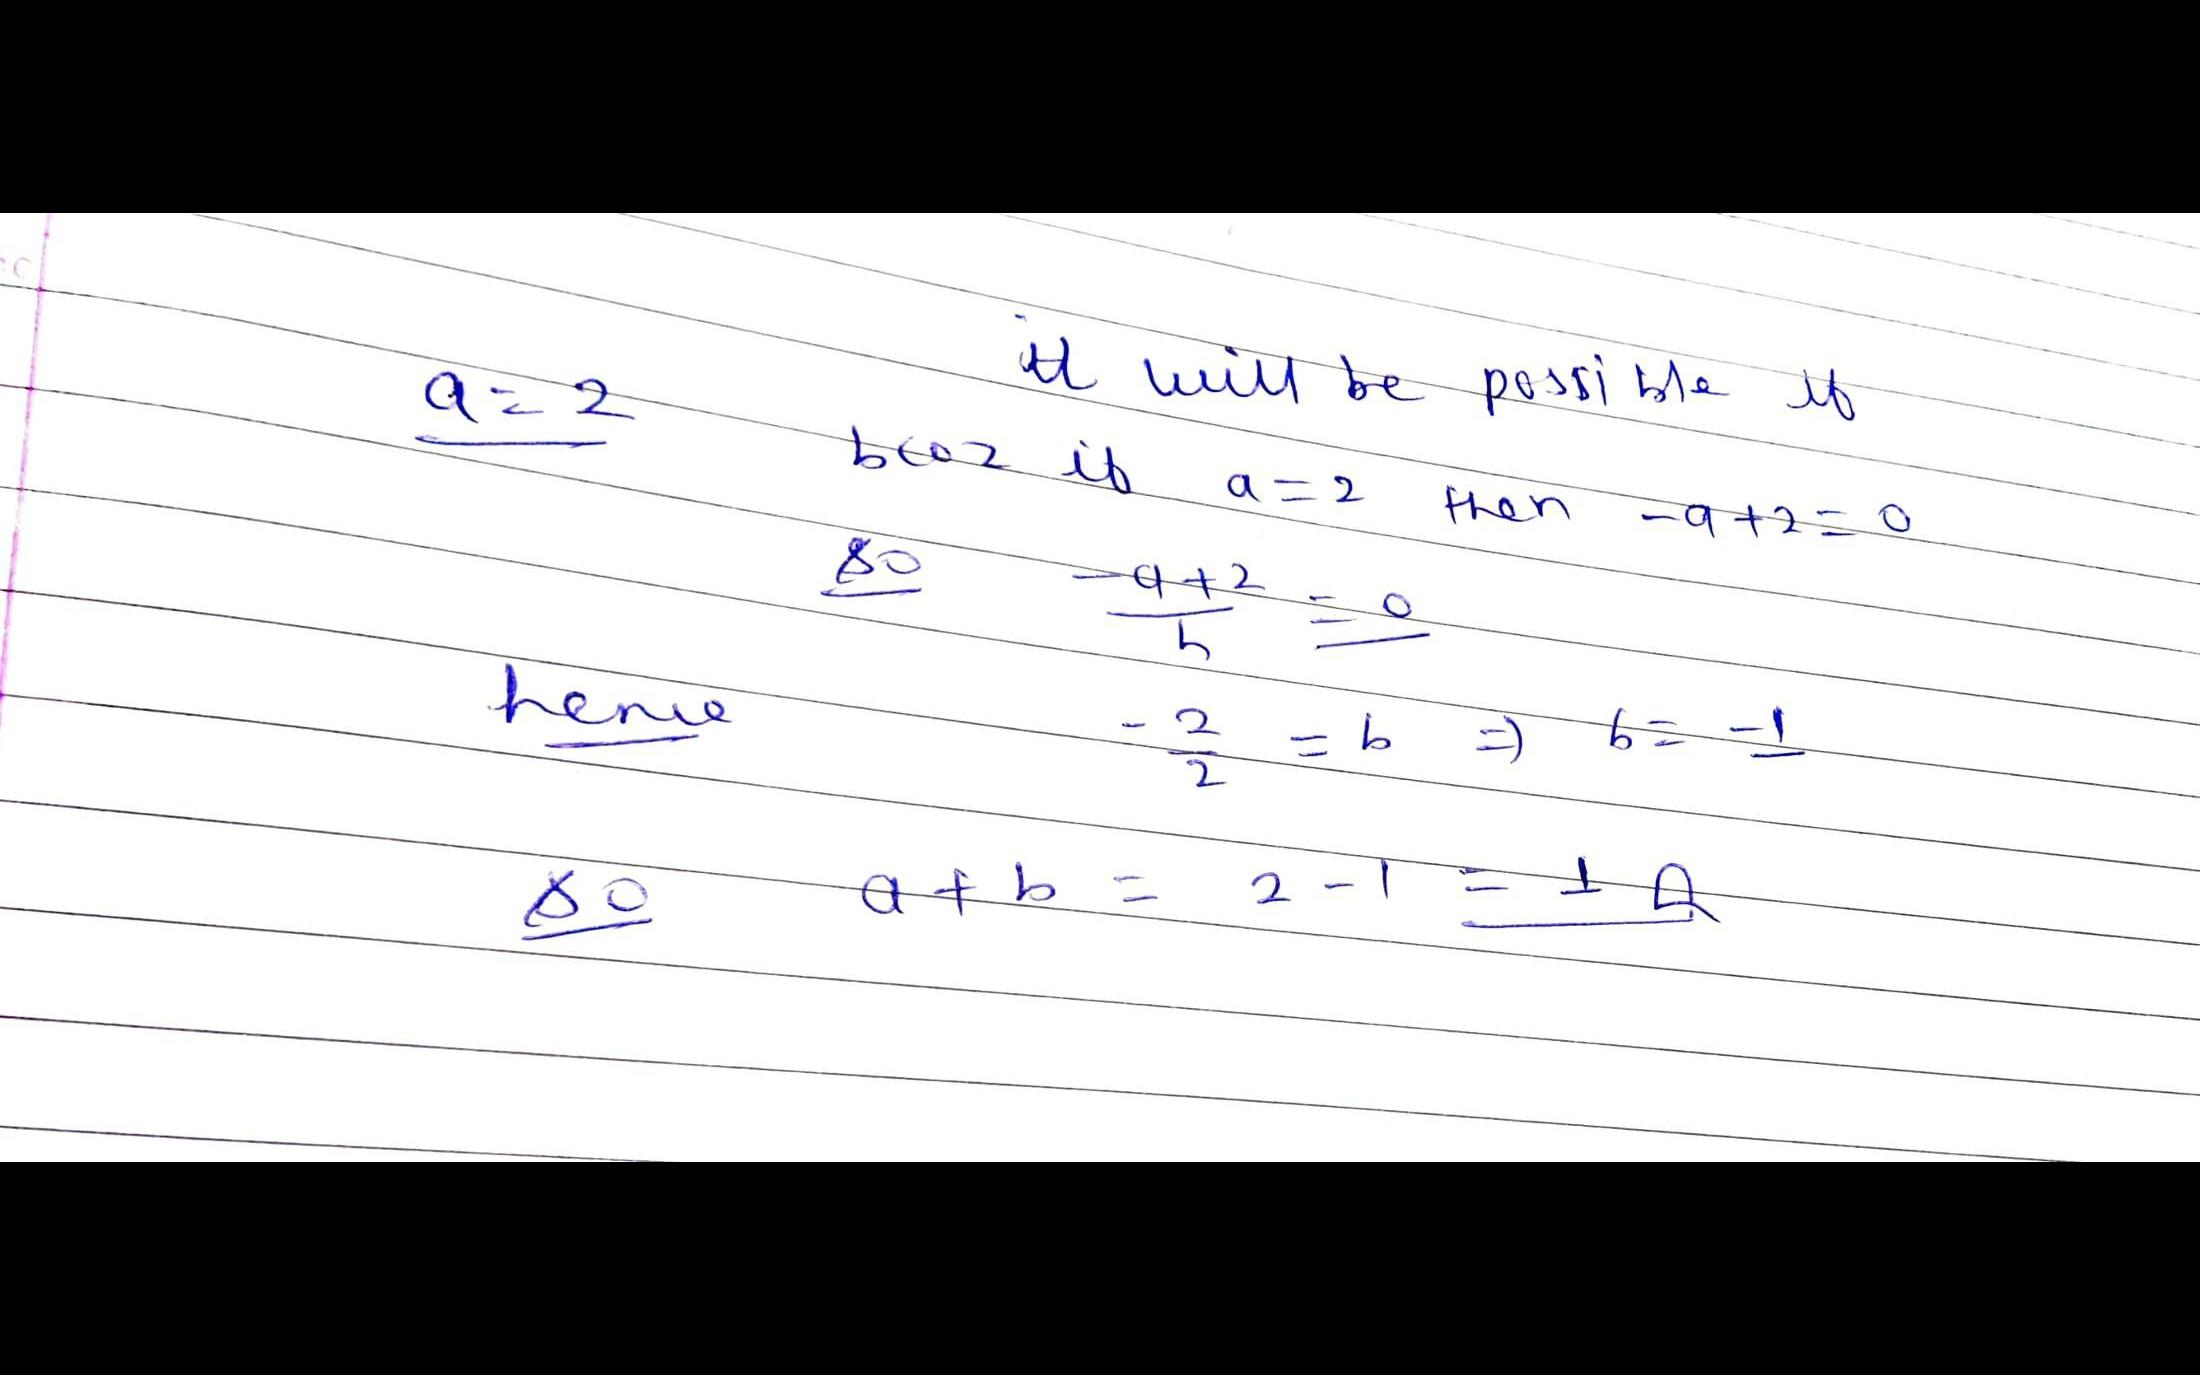 it will be possible if
a = 2
bcoz if a = 2 then -a + 2 = 0
so \frac{-a+2}{h} = 0
hence -\frac{2}{2} = b => b = -1
so a + b = 2 - 1 = 1